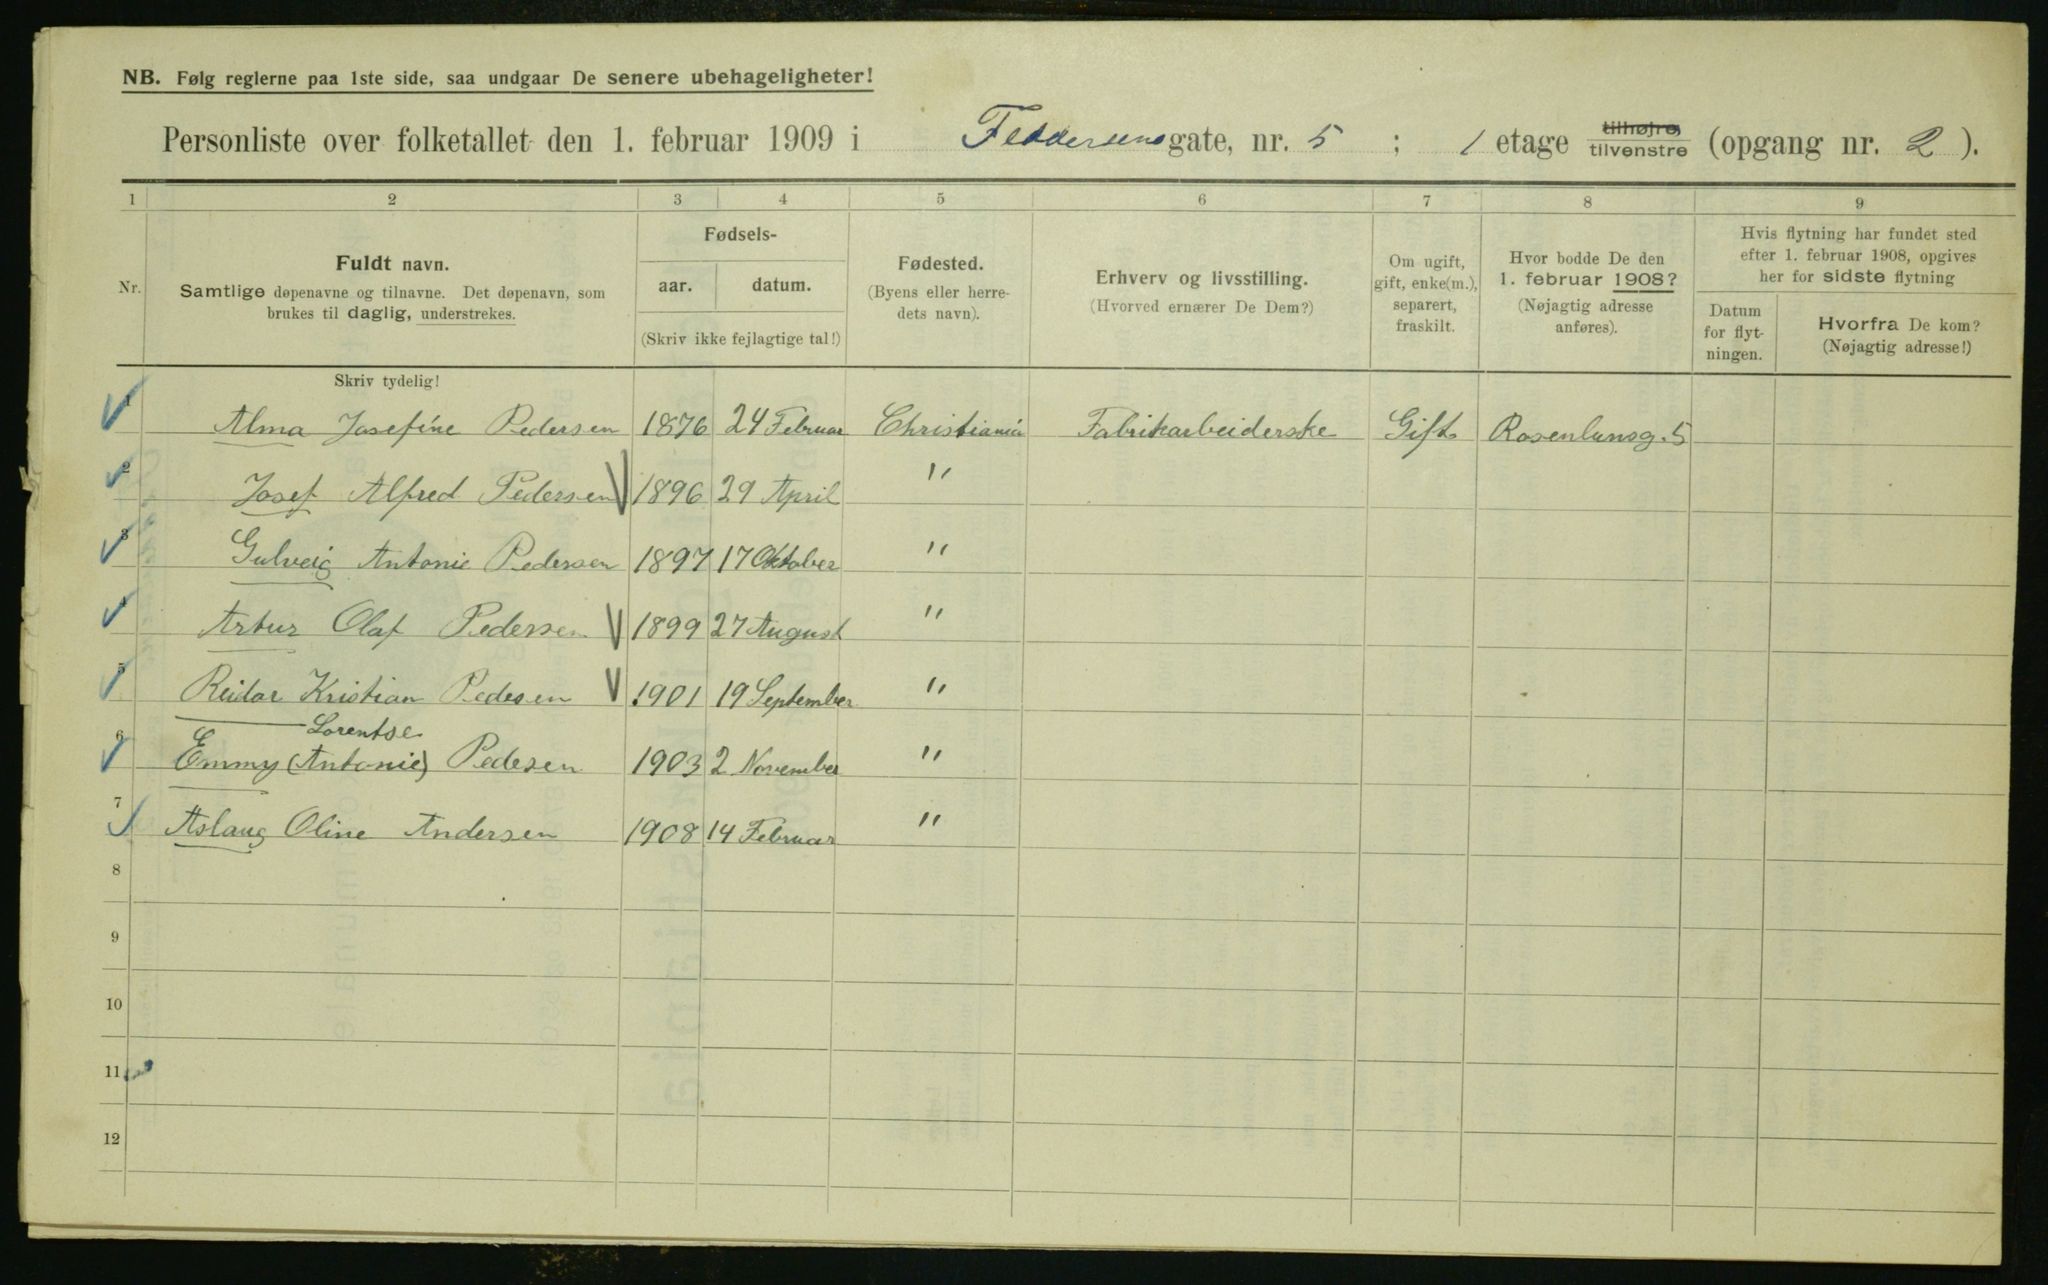 NB. Følg reglerne paa 1ste side, saa undgaar De senere ubehageligheter!
Personliste over folketallet den 1. februar 1909 i Feddersens gate, nr. 5 ; 1 etage tilhøjre tilvenstre (opgang nr. 2 ).
1 2 3 4 5 6 7 8 9
Nr.
Fuldt navn.
Samtlige døpenavne og tilnavne. Det døpenavn, som
brukes til daglig, understrekes.
Skriv tydelig!
Fødsels-
aar. datum.
(Skriv ikke fejlagtige tal!)
Fødested.
(Byens eller herre-
dets navn).
Erhverv og livsstilling.
(Hvorved ernærer De Dem?)
Om ugift,
gift, enke(m.),
separert,
fraskilt.
Hvor bodde De den
1. februar 1908?
(Nøjagtig adresse
anføres).
Hvis flytning har fundet sted
efter 1. februar 1908, opgives
her for sidste flytning
Datum
for flyt-
ningen.
Hvorfra De kom?
(Nøjagtig adresse!)
1 Alma Josefine Pedersen 1876 24 Februar Christiania Fabrikarbeiderske Gift Rosenlunsg. 5
2 Josef Alfred Pedersen 1896 29 April "
3 Gulveig Antonie Pedersen 1897 17 Oktober "
4 Artur Olaf Pedersen 1899 27 August "
5 Reidar Kristian Pedesen 1901 19 September "
Lorentse
6 Emmy (Antonie) Pedesen 1903 2 November "
7 Aslaug Oline Andersen 1908 14 Februar "
8
9
10
11
12